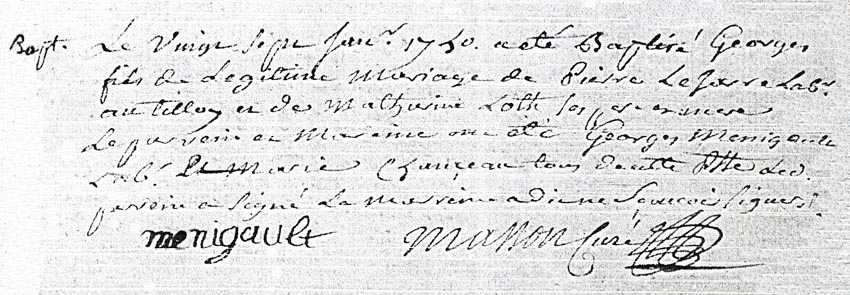 Bapt. Le Vingt sept Janv.r 1750. a eté Baptisé Georges
fils de Legitime Mariage de Pierre Lejarre Lab.r
au tilloy et de Mathurine Loth ses pere et mere
Le parrein et Mareine ont été Georges Menigault
Lab.r Et Marie Chanceau tous de cette Led.
parein a signé La Mareine a dit ne Scavoir signer.
menigault Masson Curé